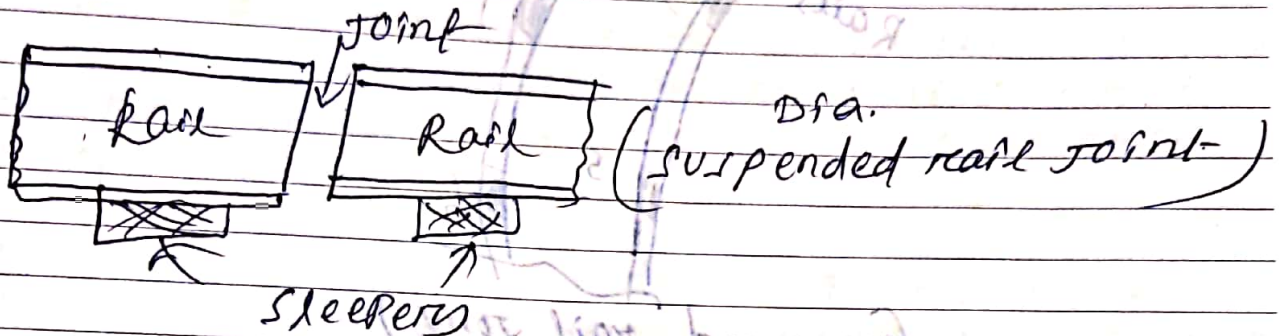 Joint
Rail
Rail
Dia.
(suspended rail joint)
Sleepers